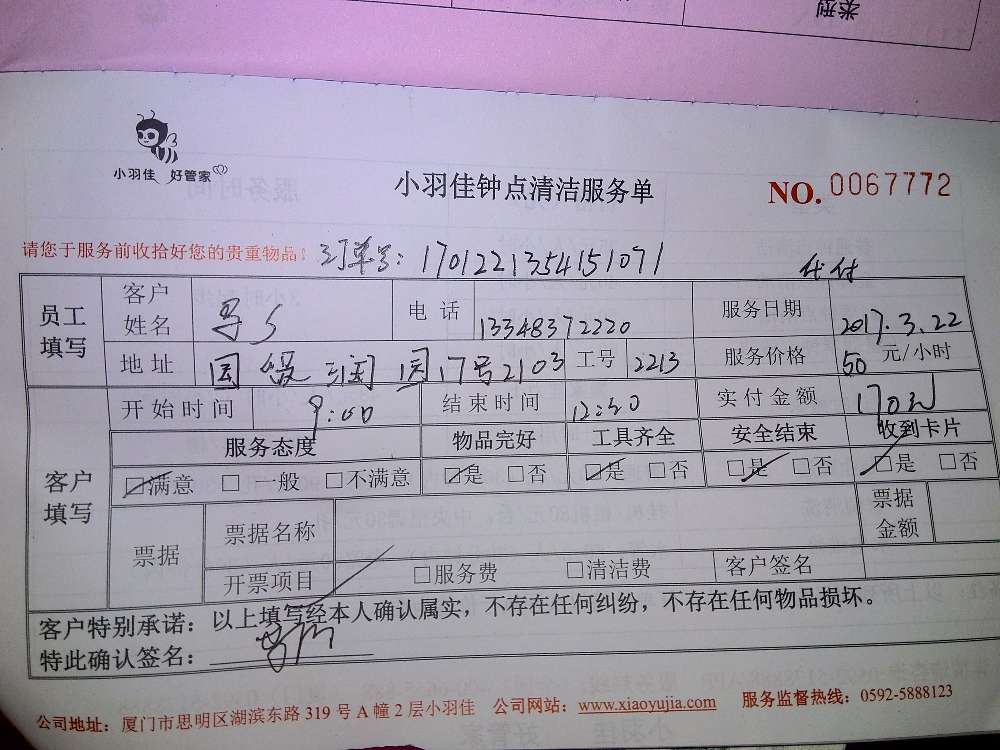 类型
小羽佳 好管家
小羽佳钟点清洁服务单
NO. 0067772
请您于服务前收拾好您的贵重物品! 订单号: 1701221354151071
代付
员工填写 客户姓名 电话 13348372220 服务日期 2017.3.22
地址 国 17号2103 工号 2213 服务价格 50 元/小时
客户填写 开始时间 9:00 结束时间 12:30 实付金额 170元
服务态度 物品完好 工具齐全 安全结束 收到卡片
☑满意 □一般 □不满意 ☑是 □否 ☑是 □否 ☑是 □否 ☑是 □否
票据 票据名称 票据金额
开票项目 □服务费 □清洁费 客户签名
客户特别承诺:以上填写经本人确认属实,不存在任何纠纷,不存在任何物品损坏。
特此确认签名:
公司地址:厦门市思明区湖滨东路 319 号 A 幢 2 层小羽佳 公司网站:www.xiaoyujia.com 服务监督热线:0592-5888123